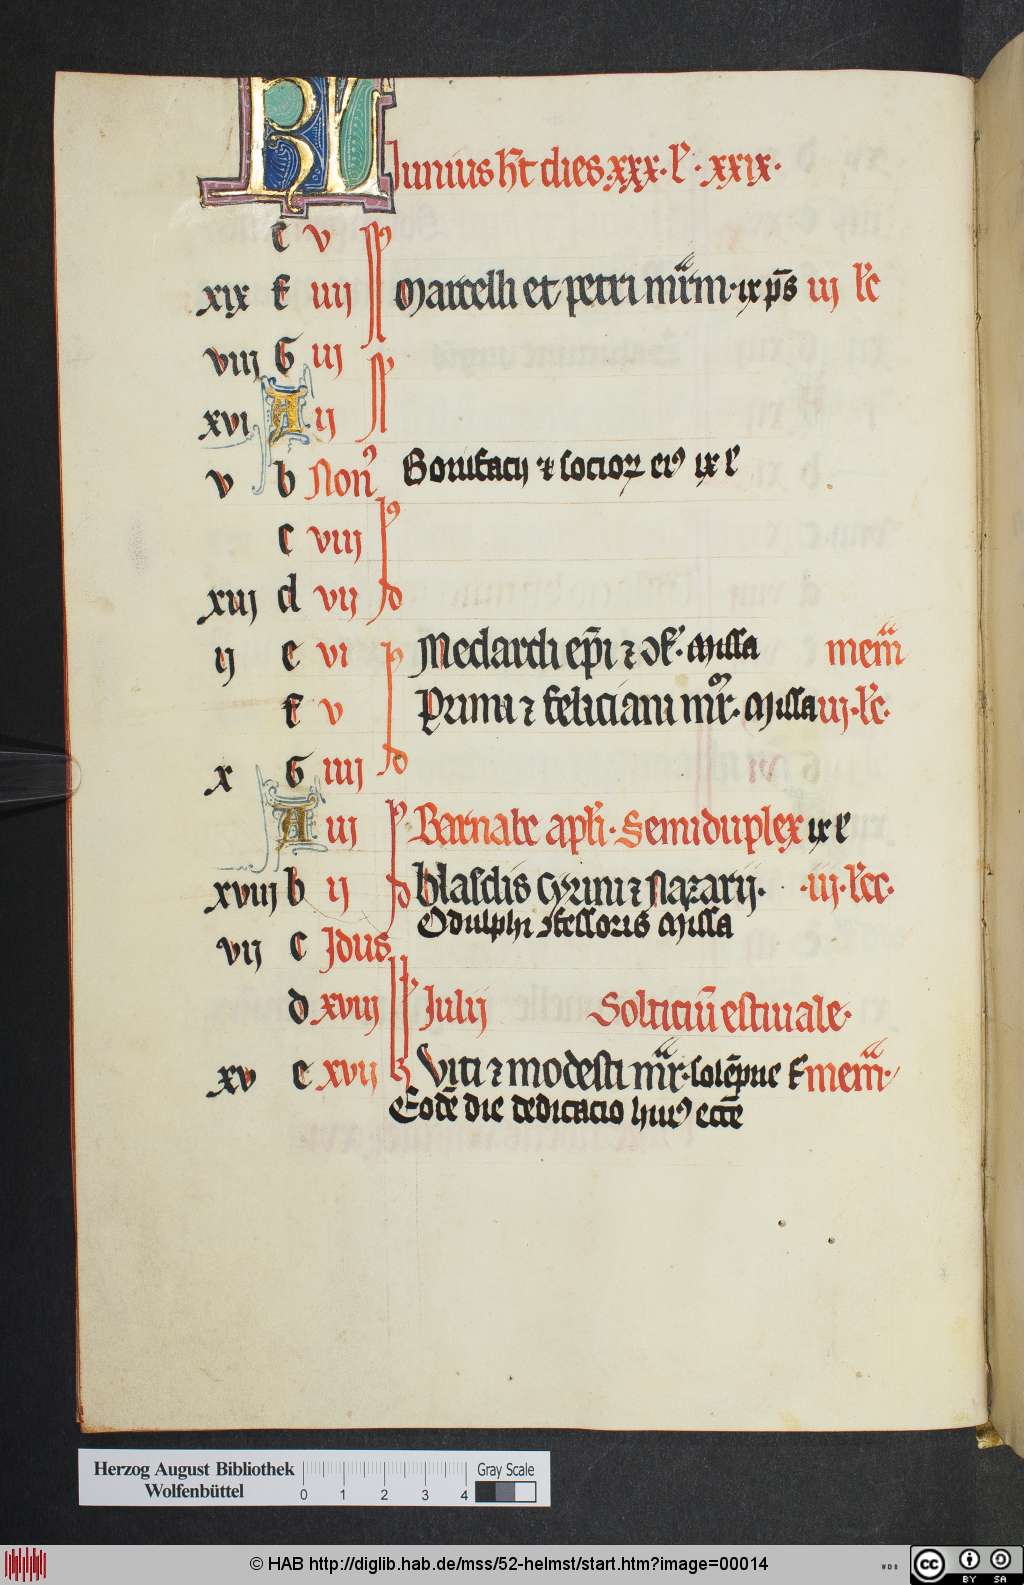 KL Iunius ht dies. xxx. l. xxix.
e v
xix f iiij Marcelli et petri mrm. ix ps iij lc
viij G iij
xvi A ij
v b Non Bonifacij et socior ei ix l
c viij
xiij d vij
ij e vi Medardi epi et Missa mem
f v Primi et feliciani mr. Missa iij. lc.
x G iiij
A iij Barnabe apli. Semiduplex ix l
xviij b ij basidis Cyrini et Nazarij. iij. lcc.
Odulphi 9fessoris Missa
vij c Idus
d xviij Julij Solticiu estiuale.
xv e xvij Viti et modesti mr. f mem.
Eode die dedicacio hui9 ecce
Herzog August Bibliothek
Wolfenbüttel
0 1 2 3 4
Gray Scale
© HAB http://diglib.hab.de/mss/52-helmst/start.htm?image=00014
WDB
cc BY SA